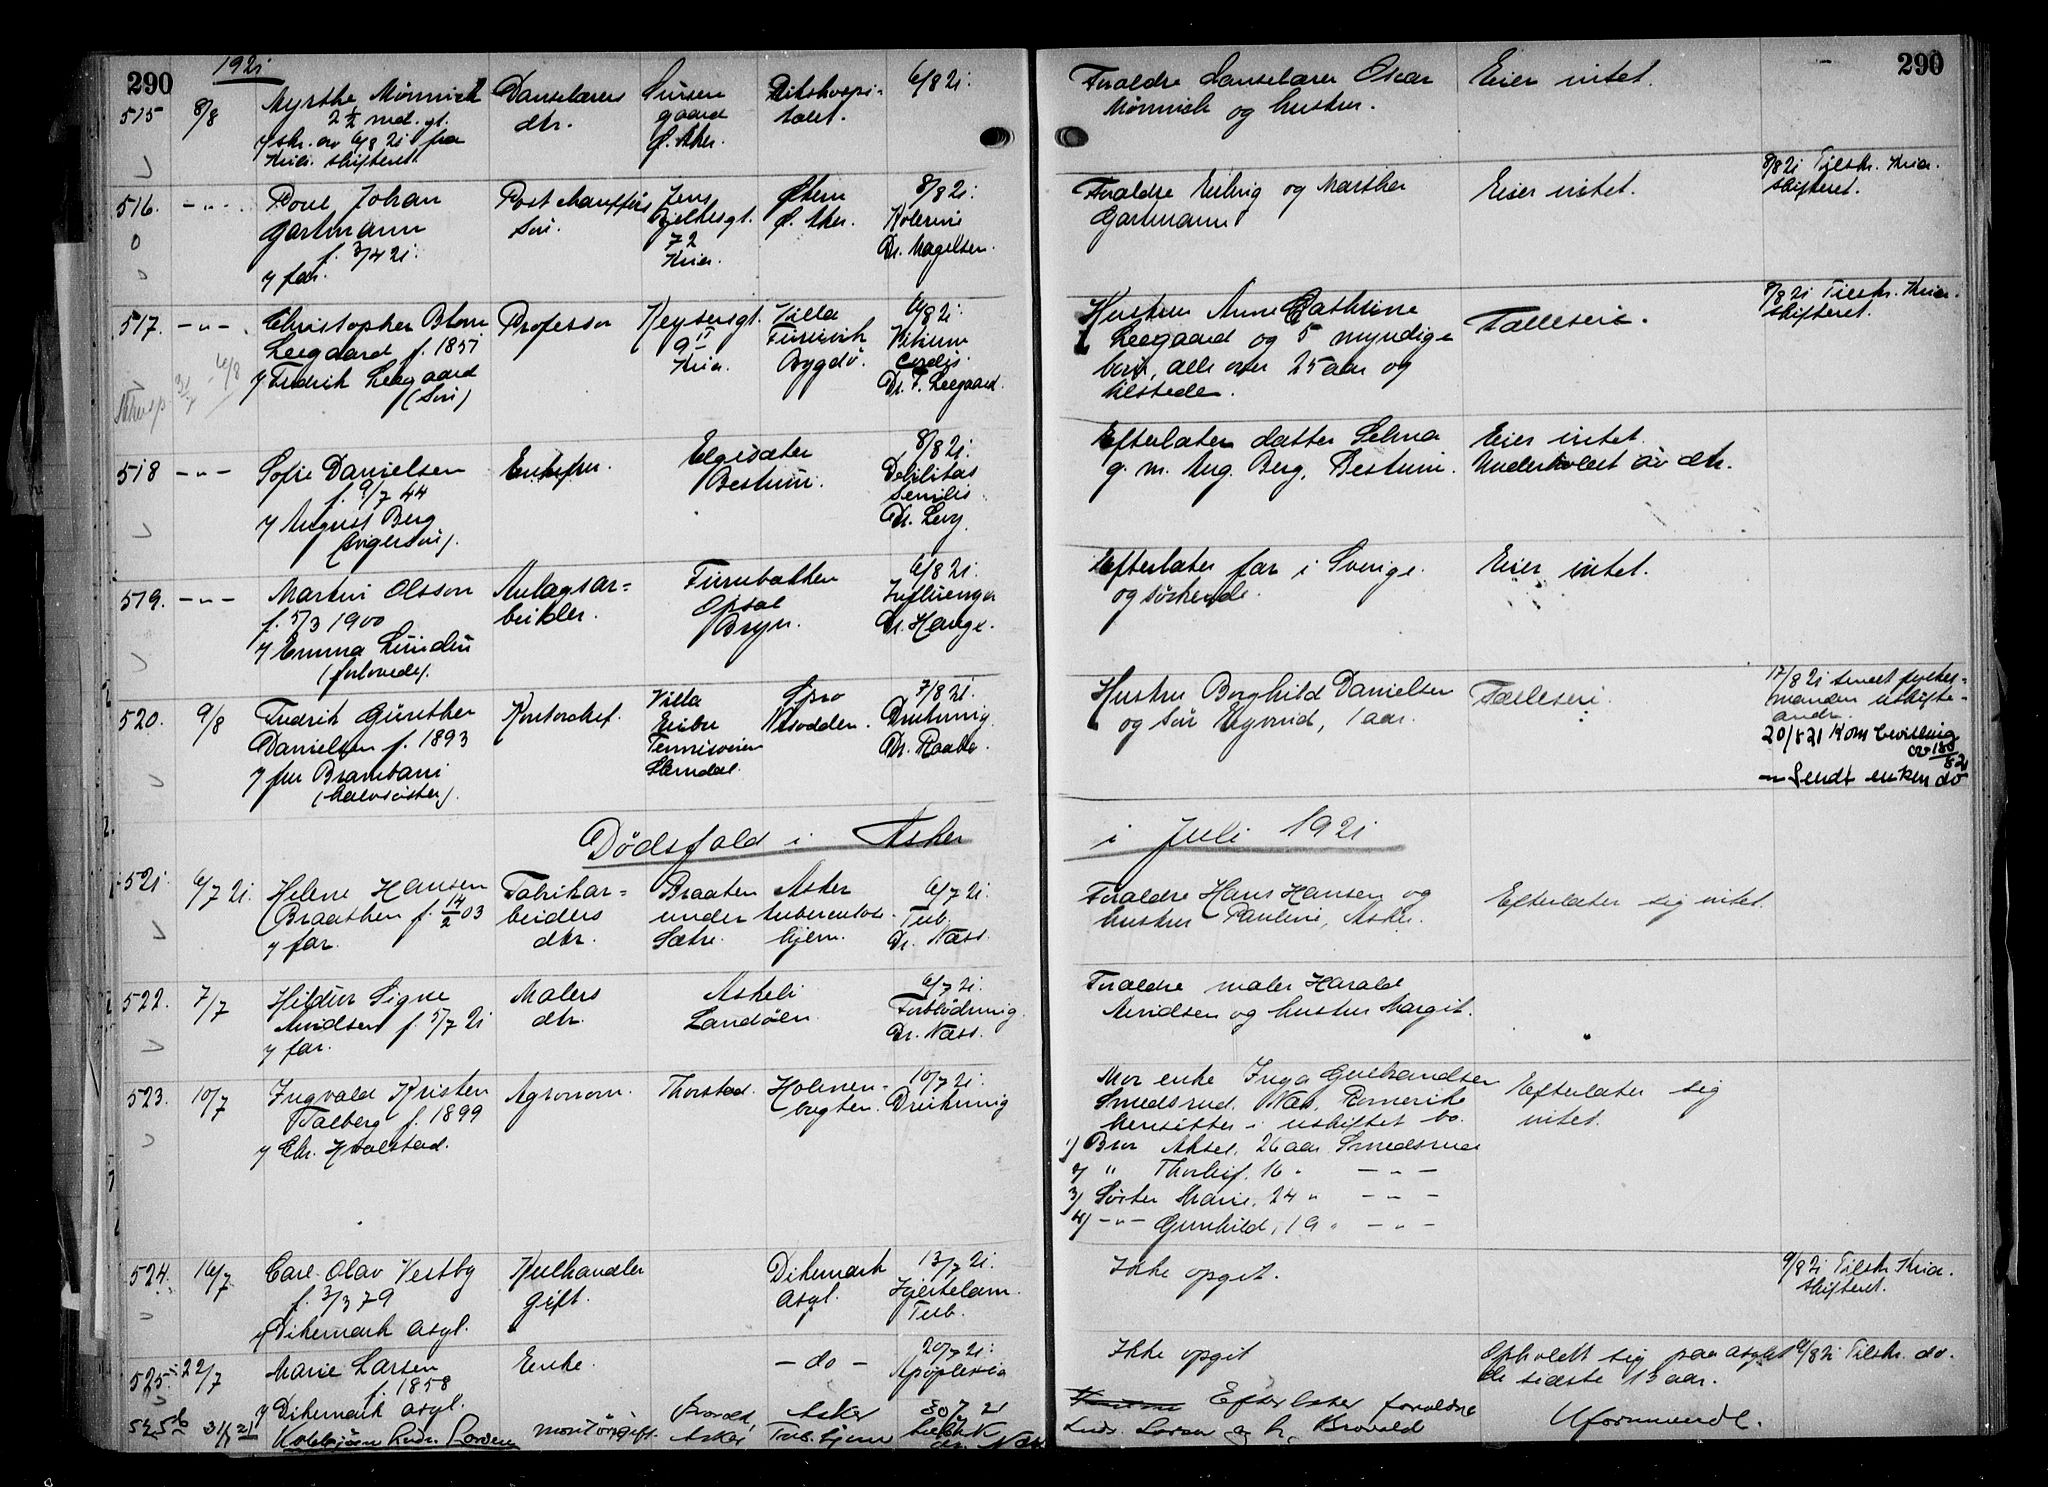 290
1921
290
515
8/8
Myrthe Mönnich
2 1/2 md. gl.
skr. av 6/8 21 fra
Kria. skifteret.
Danselærers
dtr.
gaard
Ø. Aker.
Rikshospi-
talet.
6/8 21.
Foraldre Danselærer Oscar
Mönnich og hustru.
Eier intet.
516.
-"-
Poul Johan
Gartmann
f. 3/4 21.
v/ far.
Post chaufførs
sön.
Jens
Bjelkesgt.
72
Kria.
Østern
Ø. Aker.
8/8 21.
Kolerine
Dr. Magelsen.
Foraldre Erling og Marthea
Gartmann
Eier intet.
8/8 21 Tilskr. Kria.
skifteret.
517.
-"-
Christopher Blom
Leegaard f. 1851
v/ Fredrik Leegaard
(Sön)
Professor
Keysersgt.
9 II
Kria.
Villa
Furuvik
Bygdö.
6/8 21.
Vitium
cordis.
Dr. F. Leegaard.
Hustru Anne Cathrine
Leegaard og 5 myndige
barn, alle over 25 aar og
tilstede.
Fælleseie.
8/8 21 Tilskr. Kria.
skifteret.
518
-"-
Sofie Danielsen
f. 9/7 44
v/ August Berg
(svigersön).
Enkefru.
Elgesæter
Bestum.
8/8 21.
Debilitas
senilis
Dr. Levy.
Efterlater datter Selma
g. m. Aug. Berg, Bestum.
Eier intet.
Underholdt av dtr.
519.
-"-
Martin Olsson
f. 5/3 1900
v/ Emma Lunden
(forlovede).
Anlagsar-
beider.
Furubakken
Opsal
Bryn.
6/8 21.
Influenza
Dr. Hauge.
Efterlater far i Sverige
og söskende.
Eier intet.
520.
9/8
Fredrik Günther
Danielsen f. 1893
v/ fru Brambani
(halvsöster).
Kontorchef.
Villa
Tennisveien
Slemdal.
Spro
Nesodden.
7/8 21.
Drukning
Dr. Raabe.
Hustru Borghild Danielsen
og sön Eyvind, 1 aar.
Fælleseie
17/8 21 sendt fylkes-
manden uskifte-
andr.
20/8 21 Kom bevilling
av 18/8 21
-"- Sendt enken do
Dödsfald i Asker
i Juli 1921
521.
6/7 21.
Helene Hansen
Braathen f. 14/2 03
v/ far.
Fabrikar-
beiders
dtr.
Braaten
under
Sætre.
Asker
tuberculose-
hjem.
6/7 21.
Tub.
Dr. Næss.
Foraldre Hans Hansen og
hustru Pauline, Asker.
Efterlater sig intet.
522.
7/7
Hildur Signe
Arvidsen f. 5/7 21
v/ far.
Malers
dtr.
Askeli
Landöen.
6/7 21.
Forblödning.
Dr. Næss.
Foraldre maler Harald
Arvidsen og hustru Margit.
523.
10/7
Ingvald Kristen
Talberg f. 1899
v/ Chr. Hvalstad.
Agronom.
Thorstad.
Holmen-
bugten.
10/7 21.
Drukning
Mor enke Inga Gulbrandsen
Smedsrud. Næs, Romerike
hensitter i uskiftet bo.
1) Bror Aksel, 26 aar Smedsrud
2) " Thorleif, 16 " -"-
3) Söster Marie, 24 " -"-
4) -"- Gunhild, 19 " -"-
Efterlater sig
intet.
524.
16/7
Carl Olav Vestby
f. 3/3 79
v/ Dikemark asyl.
Kulhandler
gift.
Dikemark
asyl.
13/7 21.
Hjertelam.
Tub.
Ikke opgit.
9/8 21 Tilskr. Kria.
skifteret.
525.
22/7
Marie Larsen
f. 1858
v/ Dikemark asyl.
Enke.
-do-
20/7 21.
Apoplexia
Ikke opgit
Opholdt sig paa asylet
de sidste 13 aar.
9/8 21 Tilskr. do.
525b
31/7 21
Larsen
montör gift.
Brovold,
Asker
Asker
Tub. hjem
30 7 21
Dr. Næss
Efterlater foraldre
Ludv. Larsen og h. Brovold
Uformuende.